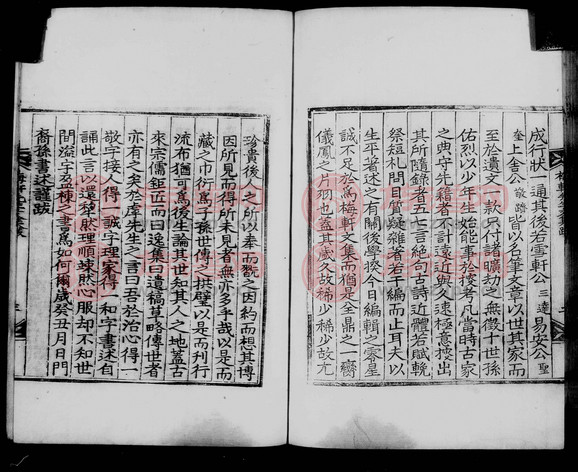 成行狀一通其後若雪軒公三達易安公聖
奎上舍公敬躋皆以名筆文章以世其家而
至於遺文一款只付諸曠劫之無徵十世孫
佑烈以少年生始能事於搜考凡當時古家
之典守先籍者不計遠近與久速極意搜出
其所隨錄者五七言絶句古詩近體若賦輓
祭短札問目質疑雜著若干編而止耳夫以
生平著述之有關後學揆今日編輯之零星
誠不足於爲梅軒文集而猶是全鼎之一臠
儀鳳之片羽也蓋其感久故稀少稀少故尤
珍貴後人之所以奉而翫之因約而想其博
因所見而得所未見者無亦多乎哉以是而
藏之巾衍爲子孫世傳之拱璧以是而刊行
流布猶可爲後生論其世知其人之地蓋古
來宗儒鉅匠而曰逸集曰遺稿草略傳世者
亦有之矣於庠先生之言曰吾於治心得一
敬字接人得一誠字理家得一和字書述自
誦此言以還犂然理順竦然心服却不知世
間溢宇盆棟之書爲如何爾歲癸丑月日門
裔孫書述謹跋